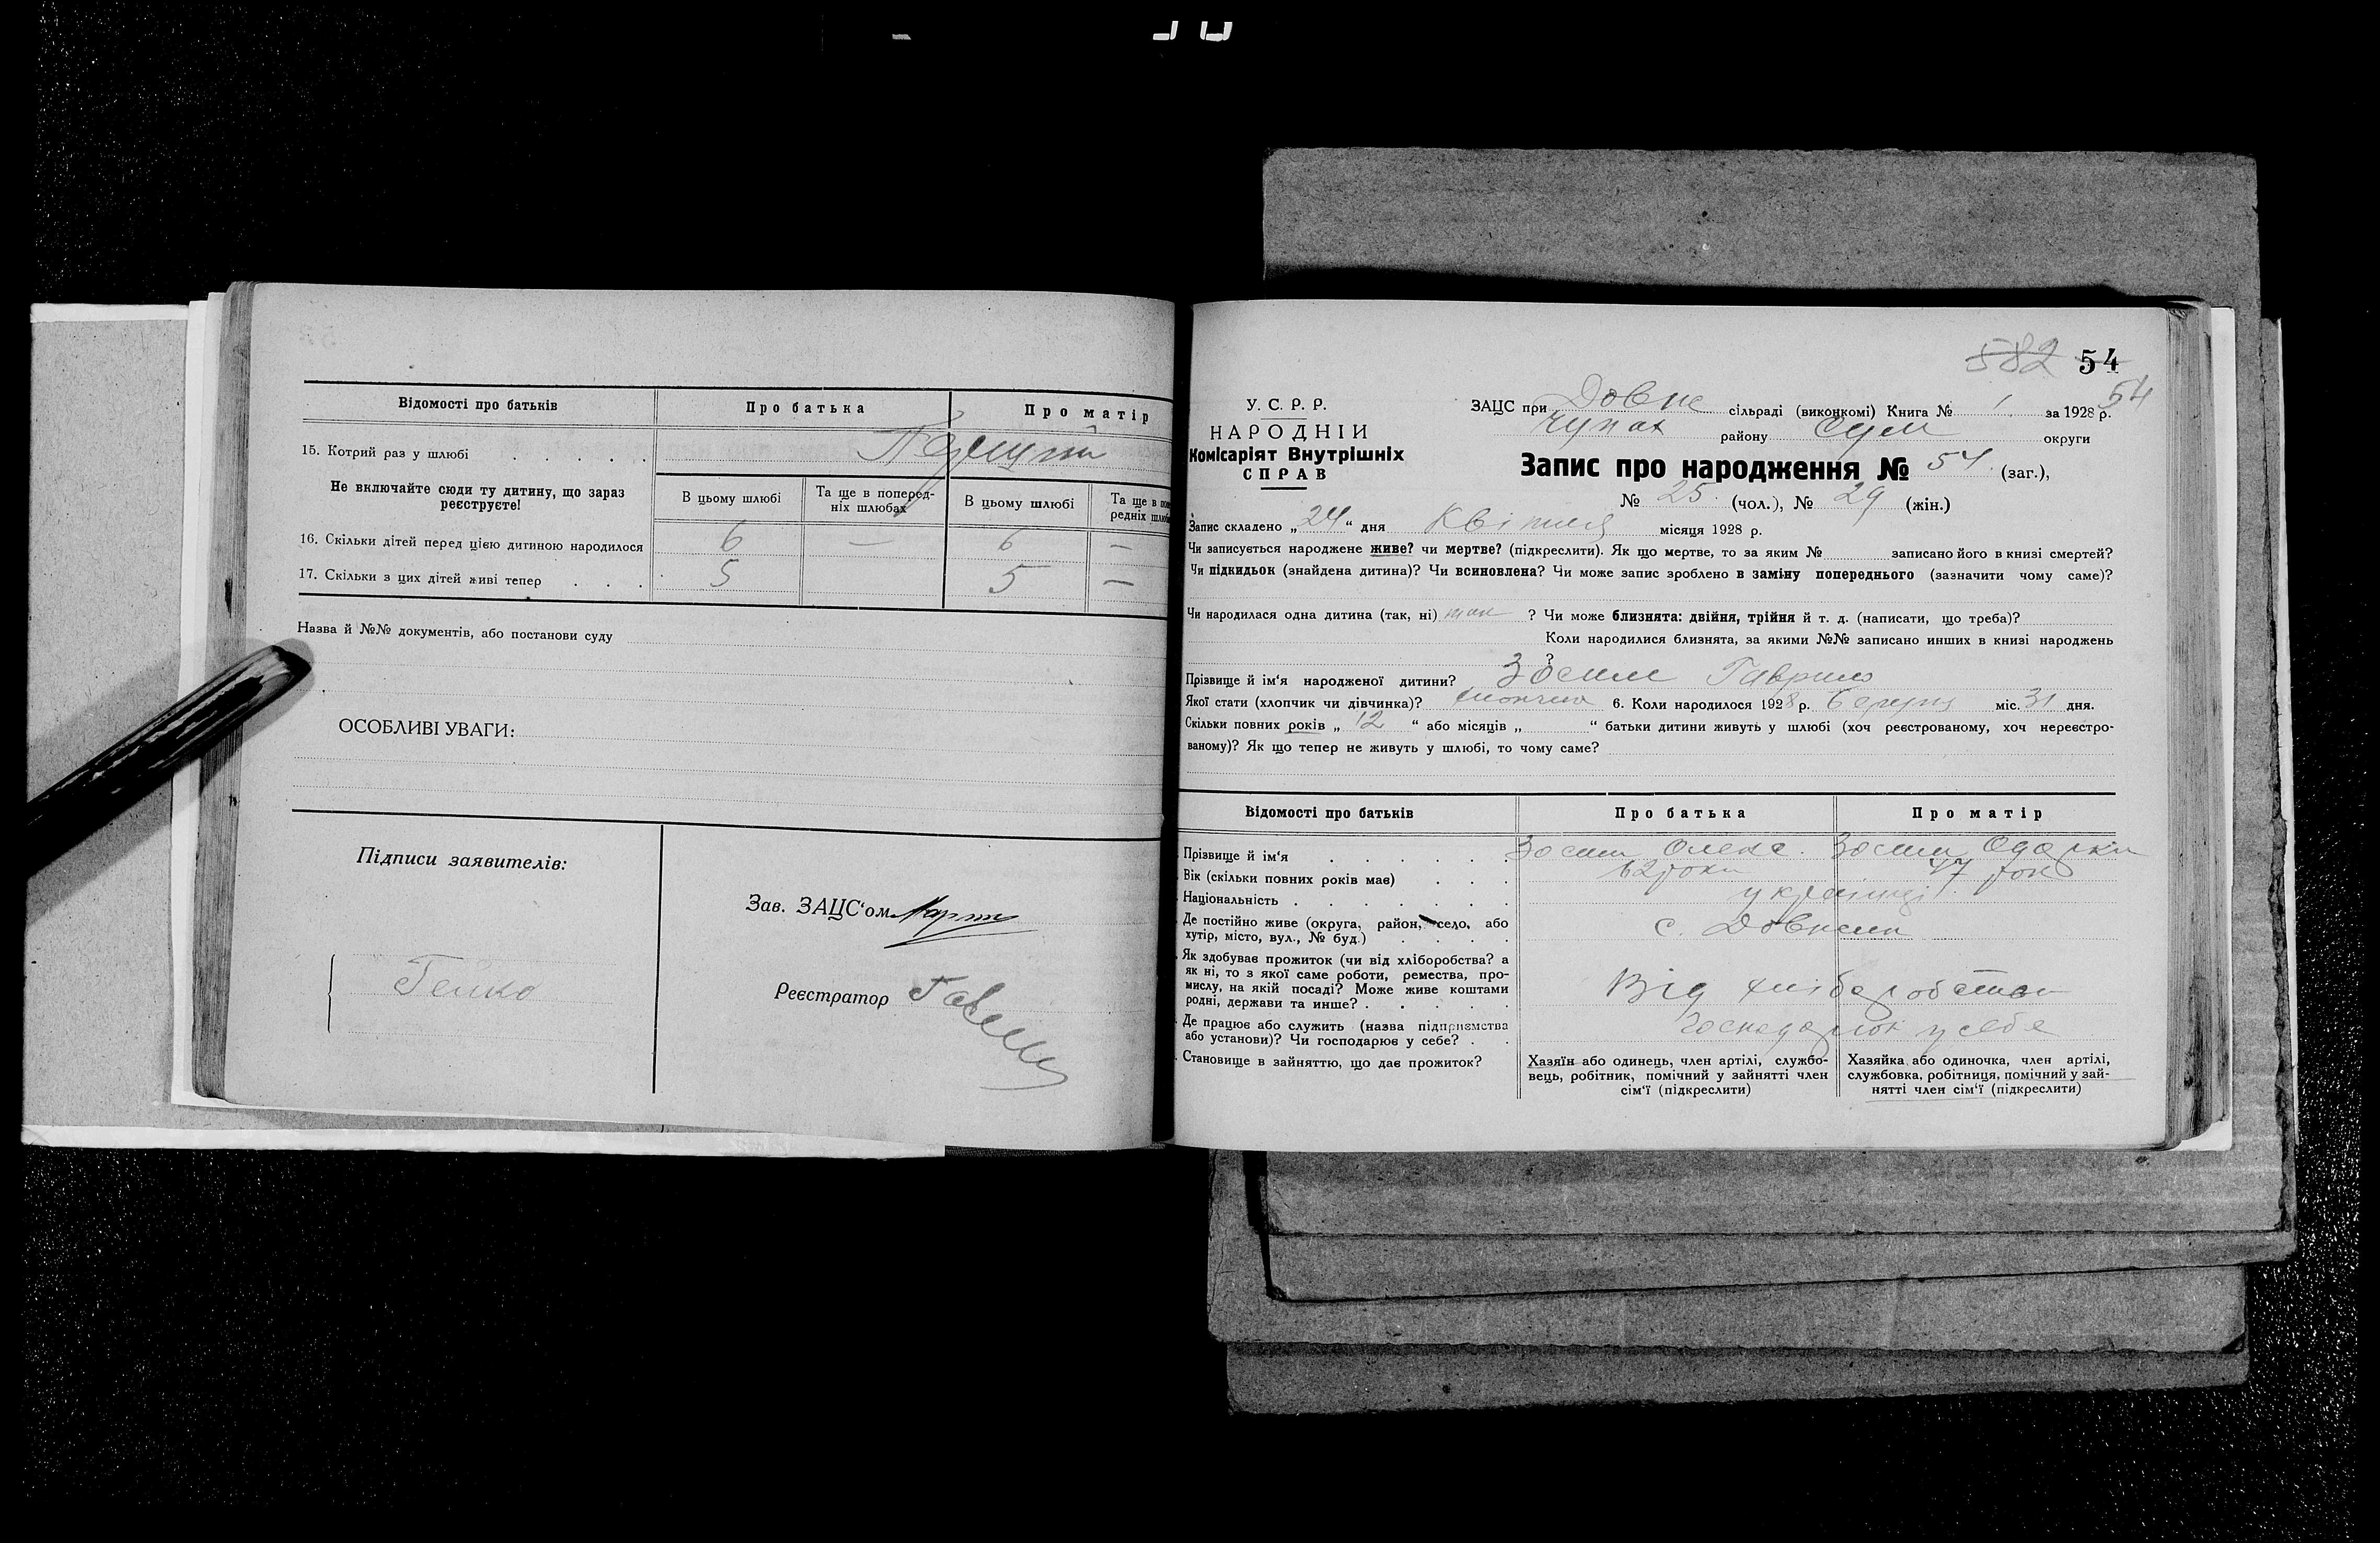 Відомості про батьків
Про батька
Про матір
15. Котрий раз у шлюбі
Не включайте сюди ту дитину, що зараз реєструєте!
В цьому шлюбі
Та ще в попередніх шлюбах
В цьому шлюбі
Та ще в попередніх
16. Скільки дітей перед цією дитиною народилося 6 — 6 —
17. Скільки з цих дітей живі тепер 5 5 —
Назва й №№ документів, або постанови суду
ОСОБЛИВІ УВАГИ:
Підписи заявителів:
Гейко
Зав. ЗАЦС'ом
Реєстратор
582 54
54
У. С. Р. Р.
НАРОДНІЙ
Комісаріят Внутрішніх
СПРАВ
ЗАЦС при Довж сільраді (виконкомі) Книга № 1 за 1928 р.
Чупах району Сум округи
Запис про народження № 54 (заг.),
№ 25 (чол.), № 29 (жін.)
Запис складено „24“ дня Квітня місяця 1928 р.
Чи записується народжене живе? чи мертве? (підкреслити). Як що мертве, то за яким № записано його в книзі смертей?
Чи підкидьок (знайдена дитина)? Чи всиновлена? Чи може запис зроблено в заміну попереднього (зазначити чому саме)?
Чи народилася одна дитина (так, ні) так ? Чи може близнята: двійня, трійня й т. д. (написати, що треба)?
Коли народилися близнята, за якими №№ записано инших в книзі народжень
?
Прізвище й ім'я народженої дитини? Зосим Гаврило
Якої стати (хлопчик чи дівчинка)? хлопчик 6. Коли народилося 1928 р. Березня міс. 31 дня.
Скільки повних років „ 12 “ або місяців „ “ батьки дитини живуть у шлюбі (хоч реєстрованому, хоч нереєстрованому)? Як що тепер не живуть у шлюбі, то чому саме?
Відомості про батьків
Про батька
Про матір
Прізвище й ім'я Зосим Олекс. Зосим Одарка
Вік (скільки повних років має) 62 роки 47 рок
Національність українці
Де постійно живе (округа, район, село, або
хутір, місто, вул., № буд.)
с. Довжик
Як здобуває прожиток (чи від хліборобства? а
як ні, то з якої саме роботи, ремества, про-
мислу, на якій посаді? Може живе коштами
родні, держави та инше?
Від хліборобства
Де працює або служить (назва підприємства
або установи)? Чи господарює у себе?
господарює у себе
Становище в зайняттю, що дає прожиток?
Хазяїн або одинець, член артілі, службо-
вець, робітник, помічний у зайнятті член
сім'ї (підкреслити)
Хазяйка або одиночка, член артілі,
службовка, робітниця, помічний у зай-
нятті член сім'ї (підкреслити)